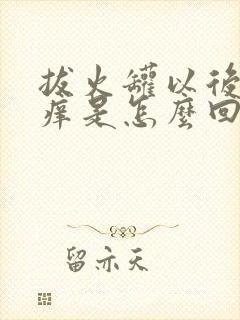 拔火罐以後
癢是怎麼回
留亦天